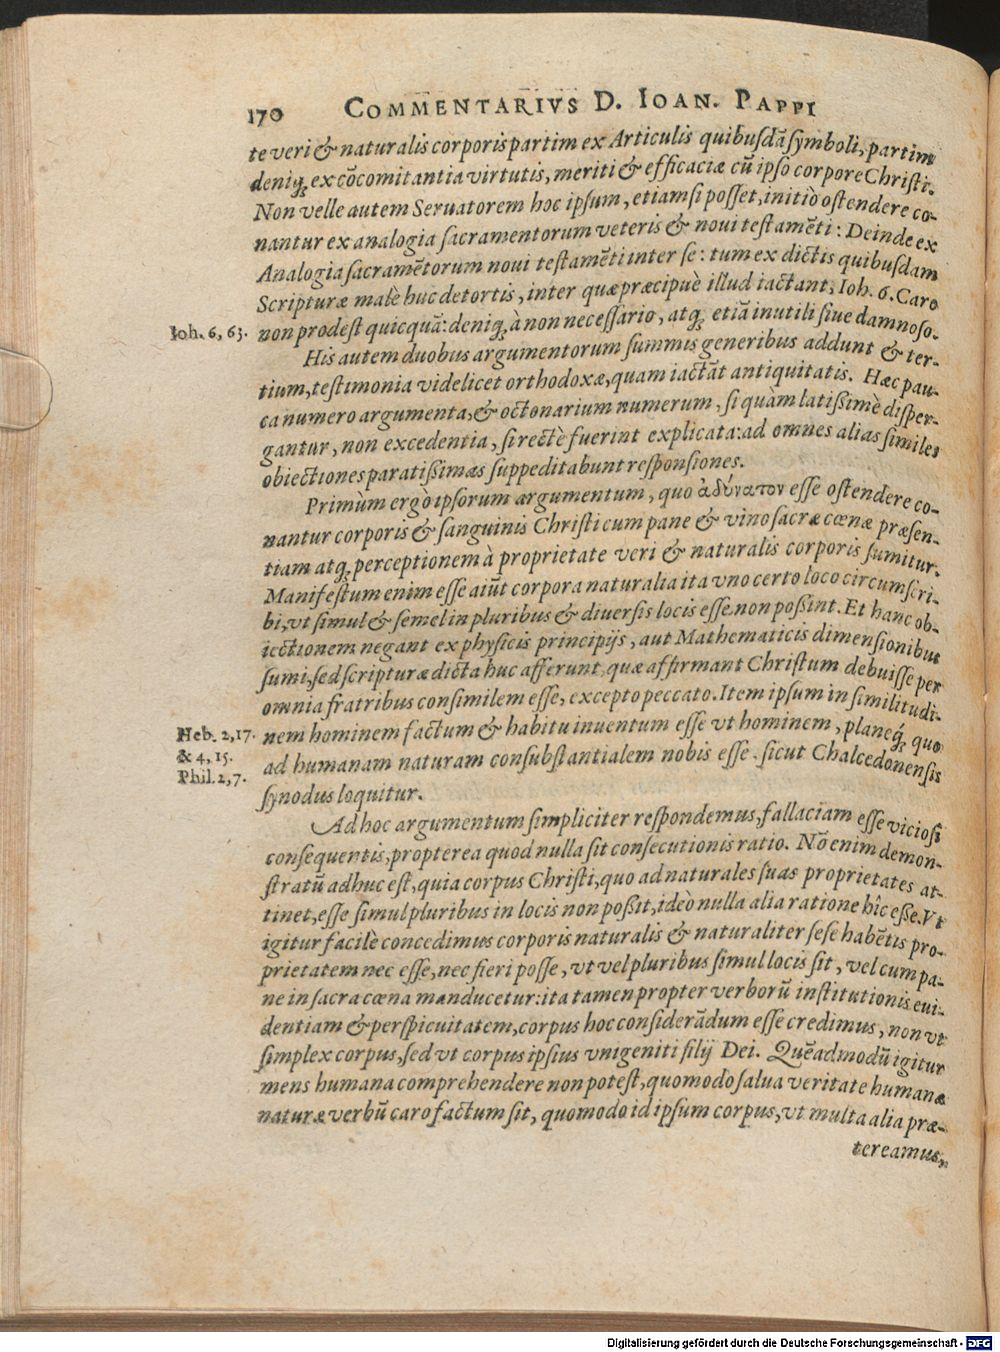 170 COMMENTARIVS D. IOAN. PAPPI
te veri & naturalis corporis partim ex Articulis quibusdā symboli, partim
deniq́; ex cōcomitantia virtutis, meriti & efficaciæ cū ipso corpore Christi.
Non velle autem Seruatorem hoc ipsum, etiamsi posset, initiò ostendere co-
nantur ex analogia sacramentorum veteris & noui testamēti: Deinde ex
Analogia sacramētorum noui testamēti inter se: tum ex dictis quibusdam
Scripturæ malè huc detortis, inter quæ præcipuè illud iactant, Ioh. 6. Caro
Ioh. 6, 63. non prodest quicquā: deniq́; à non necessario, atq́; etiā inutili siue damnoso.
His autem duobus argumentorum summis generibus addunt & ter-
tium, testimonia videlicet orthodoxæ, quam iactāt antiquitatis. Hæc pau-
ca numero argumenta, & octonarium numerum, si quàm latißimè disper-
gantur, non excedentia, si rectè fuerint explicata: ad omnes alias similes
obiectiones paratißimas suppeditabunt responsiones.
Primùm ergò ipsorum argumentum, quo ἀδύνατον esse ostendere co-
nantur corporis & sanguinis Christi cum pane & vino sacræ cœnæ præsen-
tiam atq́; perceptionem à proprietate veri & naturalis corporis sumitur.
Manifestum enim esse aiūt corpora naturalia ita vno certo loco circumscri-
bi, vt simul & semel in pluribus & diuersis locis esse non poßint. Et hanc ob-
iectionem negant ex physicis principijs, aut Mathematicis dimensionibus
sumi, sed scripturæ dicta huc afferunt, quæ affirmant Christum debuisse per
omnia fratribus consimilem esse, excepto peccato. Item ipsum in similitudi-
Heb. 2, 17. nem hominem factum & habitu inuentum esse vt hominem, planeq́; quo
& 4, 15. ad humanam naturam consubstantialem nobis esse. sicut Chalcedonensis
Phil. 2, 7. synodus loquitur.
Ad hoc argumentum simpliciter respondemus, fallaciam esse viciosi
consequentis, propterea quod nulla sit consecutionis ratio. Nō enim demon-
stratū adhuc est, quia corpus Christi, quo ad naturales suas proprietates at-
tinet, esse simul pluribus in locis non poßit, ideò nulla alia ratione hîc esse. Vt
igitur facilè concedimus corporis naturalis & naturaliter sese habētis pro-
prietatem nec esse, nec fieri posse, vt vel pluribus simul locis sit, vel cum pa-
ne in sacra cœna manducetur: ita tamen propter verborū institutionis eui-
dentiam & perspicuitatem, corpus hoc considerādum esse credimus, non vt
simplex corpus, sed vt corpus ipsius vnigeniti filij Dei. Quēadmodū igitur
mens humana comprehendere non potest, quomodo salua veritate humanæ
naturæ verbū caro factum sit, quomodo id ipsum corpus, vt multa alia præ-
tereamus,
Digitalisierung gefördert durch die Deutsche Forschungsgemeinschaft - DFG